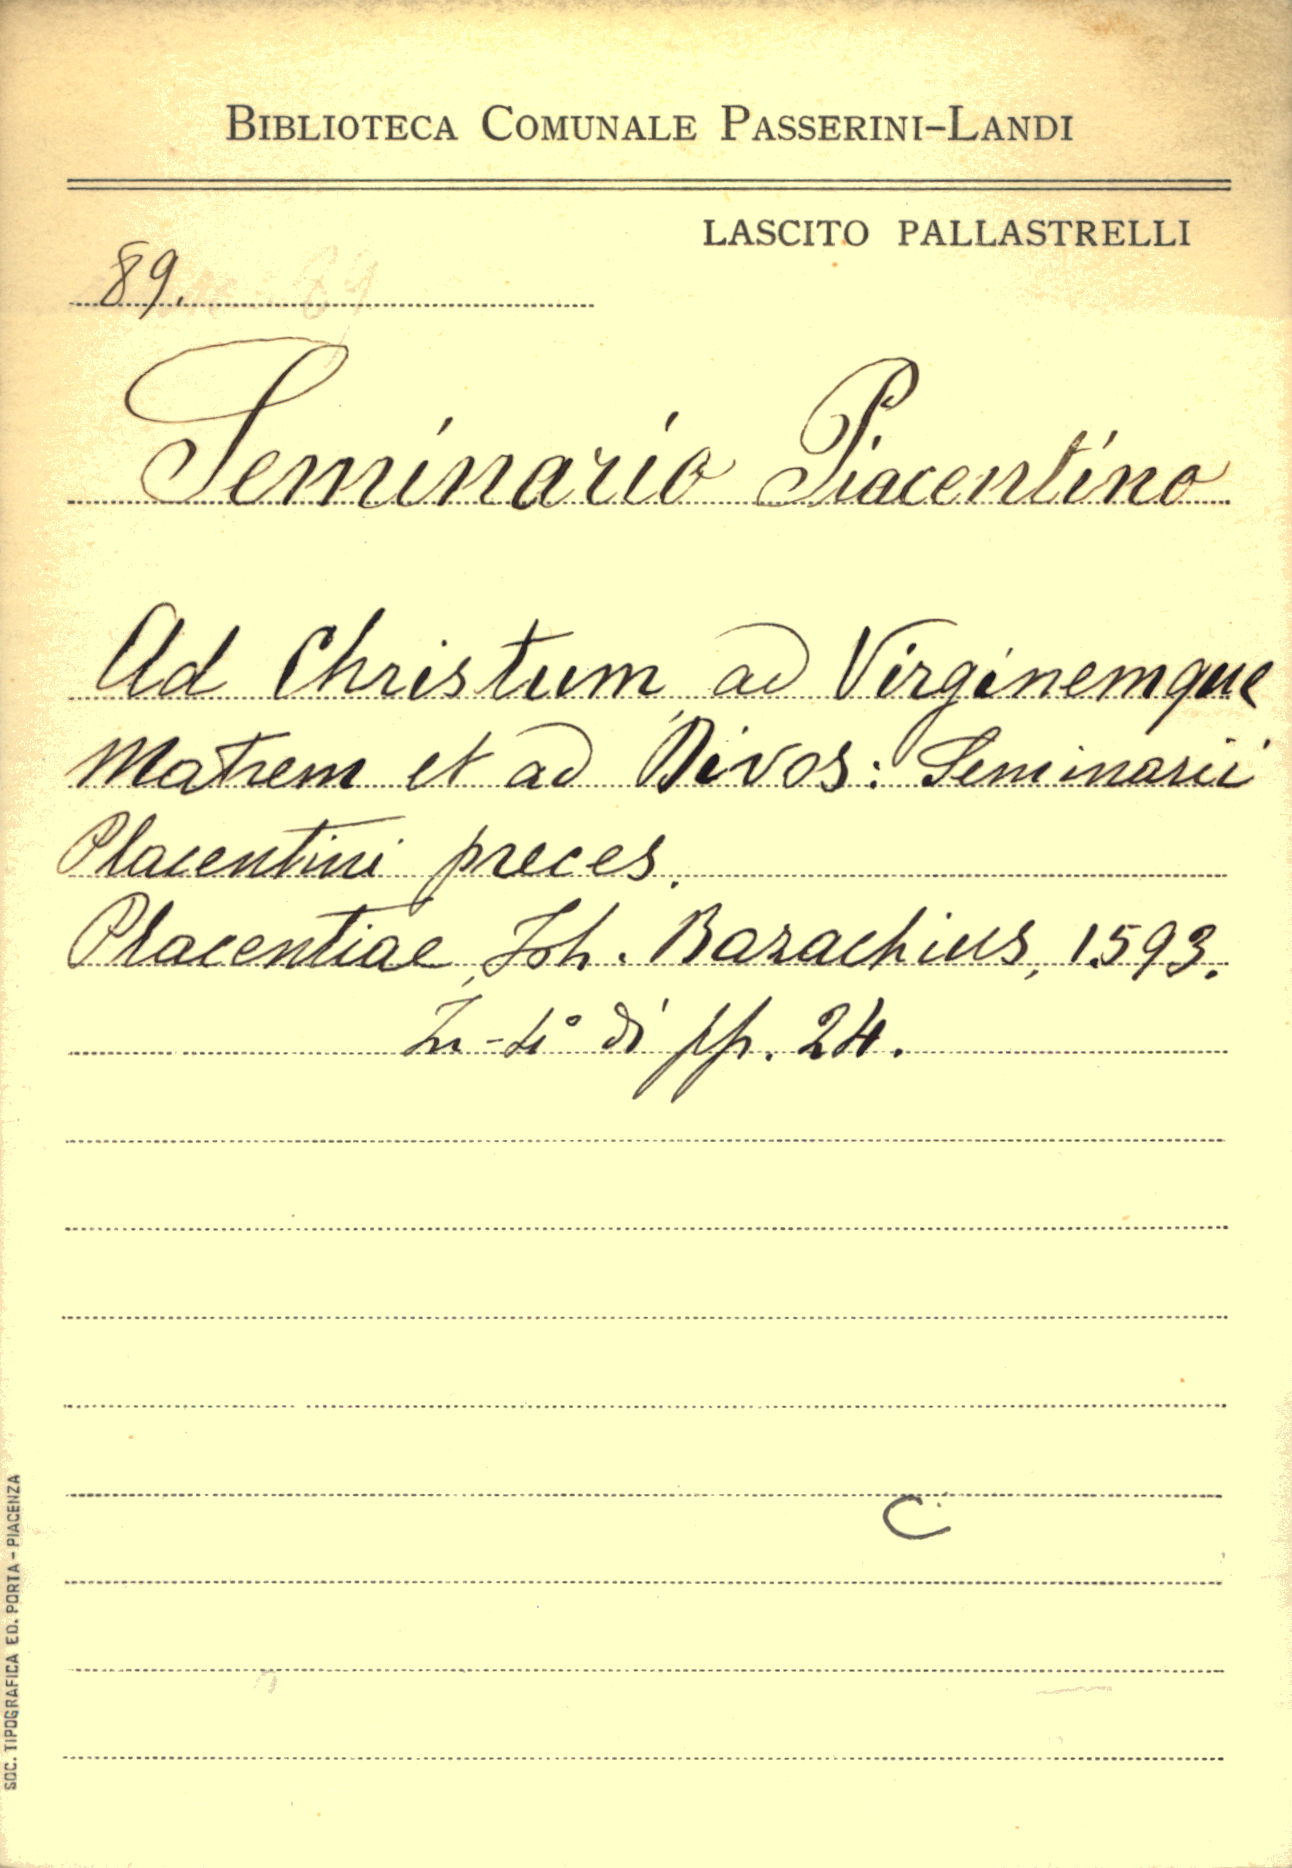 BIBLIOTECA COMUNALE PASSERINI-LANDI
LASCITO PALLASTRELLI
89.
Seminario Piacentino
Ad Christum, ad Virginemque
Matrem et ad Divos: Seminarii
Placentini preces.
Placentiae, Joh. Bazachius, 1593.
In-4° di pp. 24.
C
SOC. TIPOGRAFICA ED. PORTA - PIACENZA